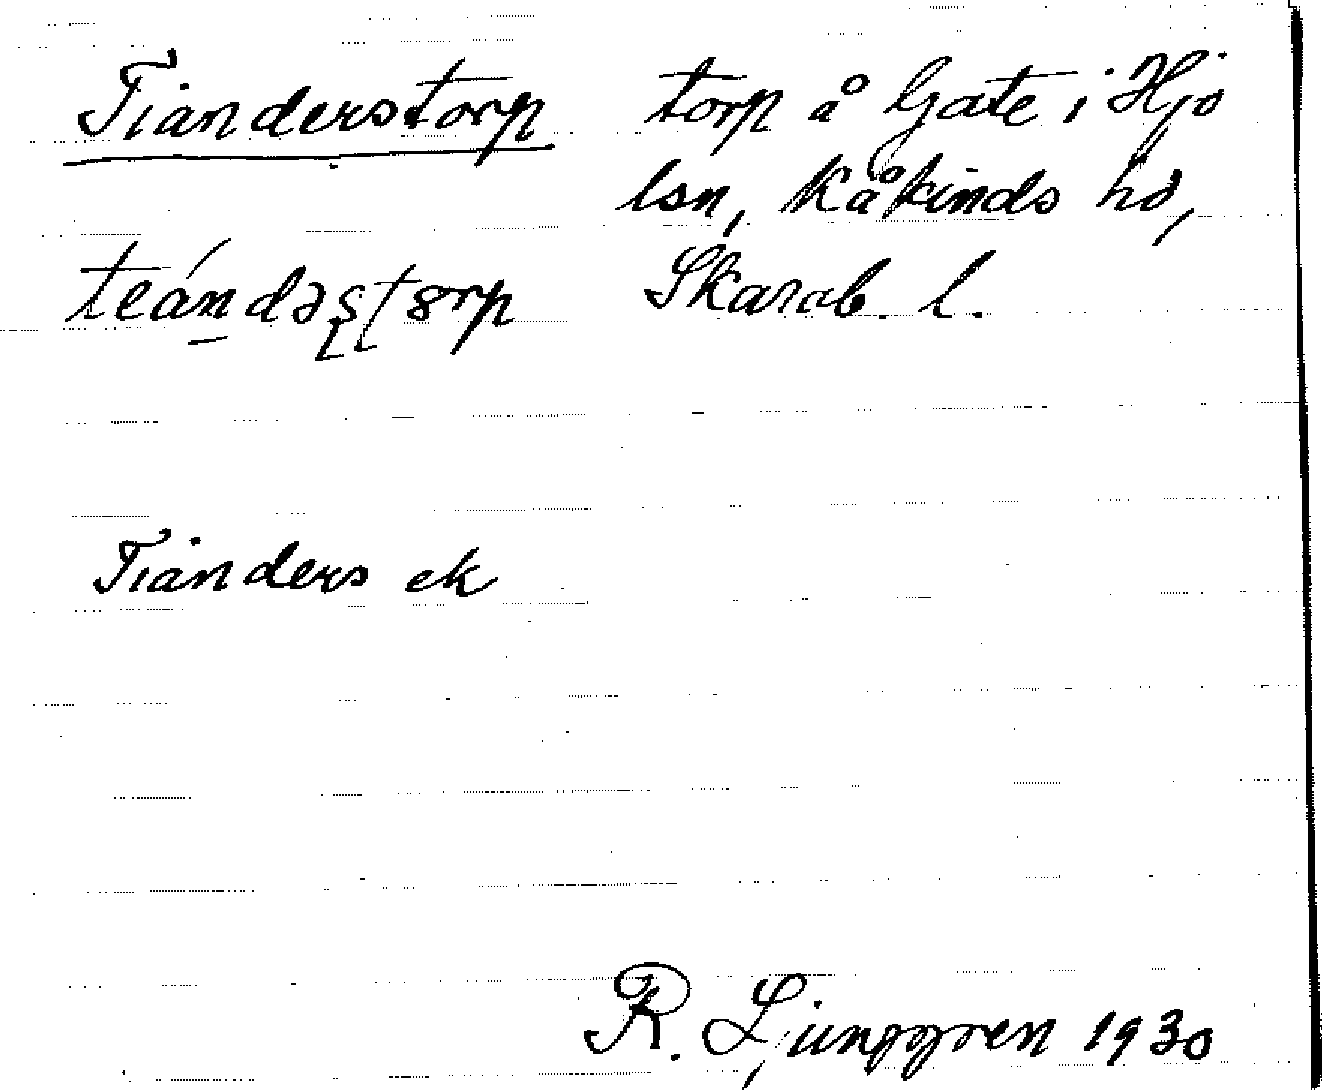 Tianderstorp torp å Gate i Hjo
lsn, Kåkinds hd,
teándəʂʈɞrp Skarab. l.
Tianders ek
R. Ljunggren 1930